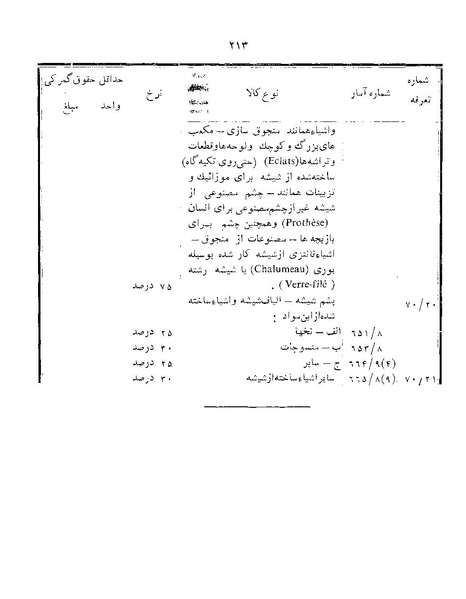 ۲۱۳
شماره تعرفه
شماره آمار
نوع کالا
نرخ
حداقل حقوق گمرکی
واحد مبلغ
واشیاء همانند منجوق سازی – مکعب
های بزرگ و کوچک ولوحه‌ها وقطعات
وتراشه‌ها (Eclats) (حتی روی تکیه گاه)
ساخته‌شده از شیشه برای موزائیک و
تزیینات همانند – چشم مصنوعی از
شیشه غیر از چشم مصنوعی برای انسان
(Prothèse) وهمچنین چشم برای
بازیچه ها – مصنوعات از منجوق –
اشیاء فانتزی از شیشه کار شده بوسیله
بوری (Chalumeau) یا شیشه رشته
(Verre-filé) . ۷۵ درصد
۷۰/۲۰ پشم شیشه – الیاف شیشه واشیاء ساخته
شده از این مواد :
۶۵۱/۸ الف – نخها ۲۵ درصد
۶۵۳/۸ ب – منسوجات ۳۰ درصد
۶۶۴/۹(۴) ج – سایر ۲۵ درصد
۷۰/۲۱ ۶۶۵/۸(۹) سایر اشیاء ساخته از شیشه ۳۰ درصد